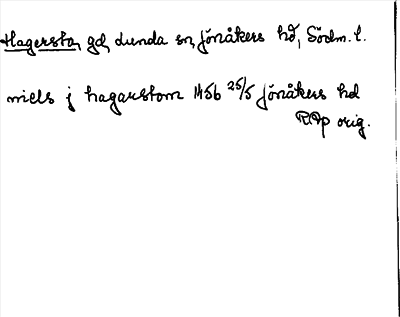 Hagersta, gd, Lunda sn, Jönåkers hd, Södm. l.
niels j hagarstom 1456 25/5 Jönåkers hd
RAp orig.